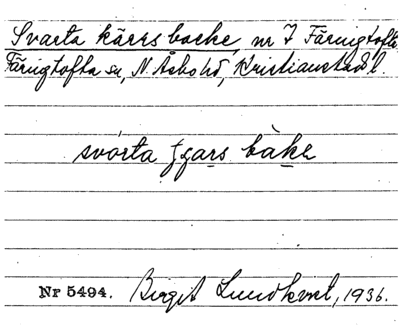 Svarta kärrs backe, nr 7 Färingtofta
Färingtofta sn, N. Åsbo hd, Kristianstads l.
svárta ʃɟars bàkɛ
Nr 5494. Birgit Lundkvist, 1936.